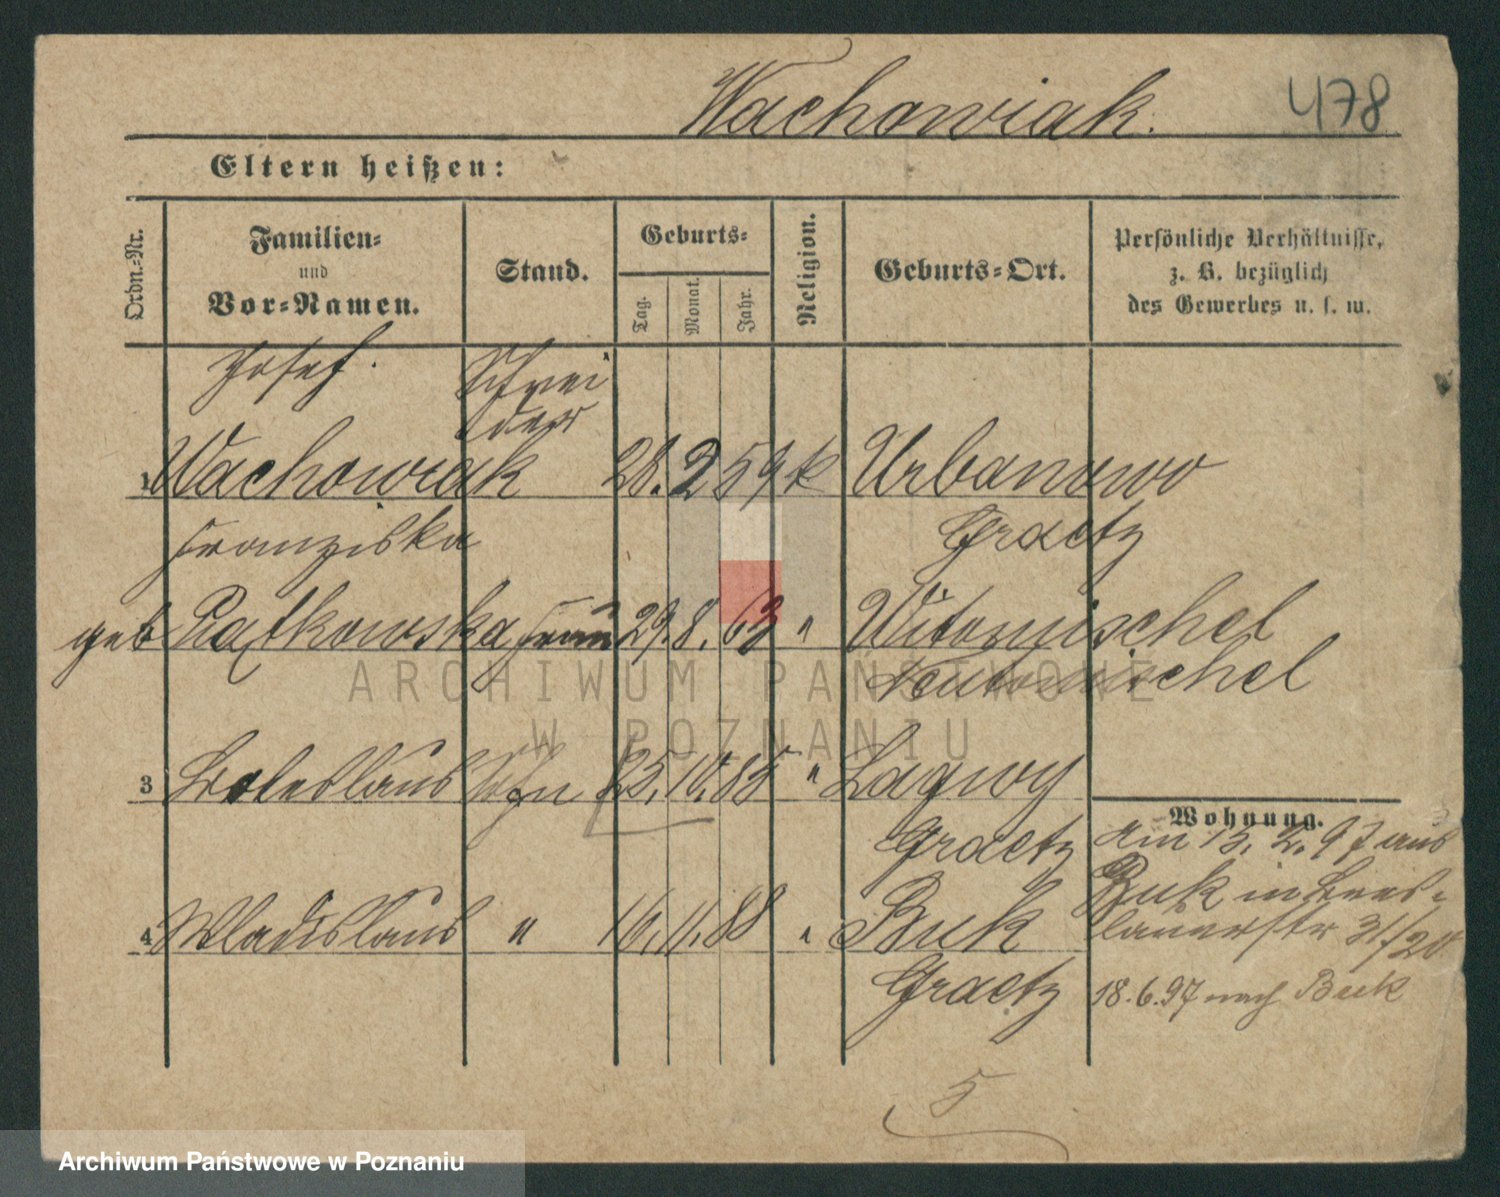 Wachowiak.
478
Eltern heißen:
Ordn.-Nr.
Familien-
und
Vor-Namen.
Stand.
Geburts-
Tag.
Monat.
Jahr.
Religion.
Geburts-Ort.
Persönliche Verhältnisse,
z. B. bezüglich
des Gewerbes u. s. w.
Josef. Schnei
der
1 Wachowiak 28. 2 59 k Urbanowo
Franziska Graetz
geb Ratkowska Frau 29. 8. 63 " Witomischel
Neutomischel
3 Boleslaus Sohn 25. 10. 85 " Lagwy
Graetz
4 Wladislaus " 16. 11. 88 " Buk
Graetz
Wohnung.
Am 13. 2. 97 aus
Buk in Bres-
lauerstr 31/20
18.6.97 nach Buk
5
ARCHIWUM PAŃSTWOWE
W POZNANIU
Archiwum Państwowe w Poznaniu